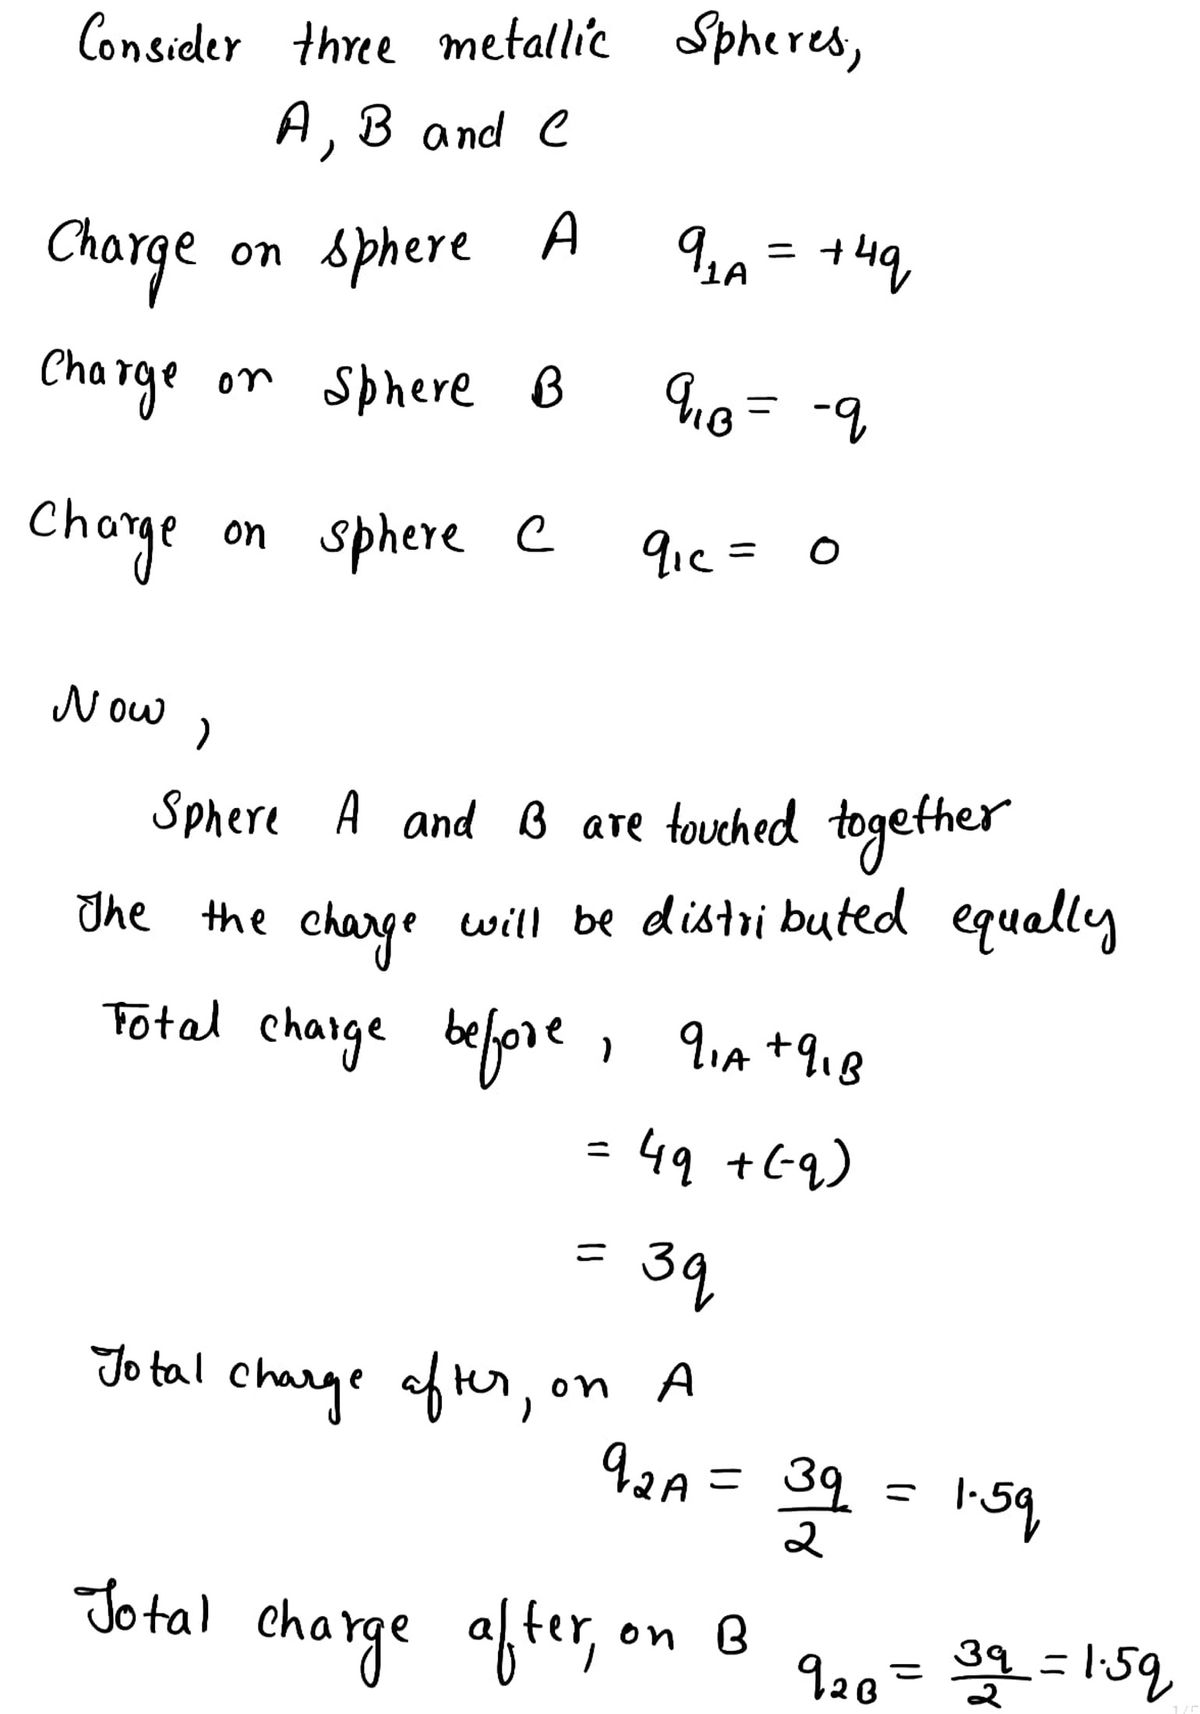 Consider three metallic Spheres,
A, B and C
Charge on sphere A q₁A = +4q
Charge on Sphere B q₁B = -q
Charge on sphere C q₁C = 0
Now,
Sphere A and B are touched together
The the charge will be distributed equally
Total charge before, q₁A + q₁B
= 4q + (-q)
= 3q
Total charge after, on A
q₂A = 3q/2 = 1.5q
Total charge after, on B q₂B = 3q/2 = 1.5q